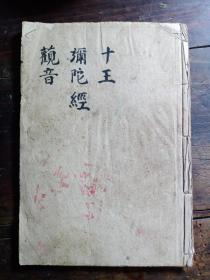 十王
彌陀經
觀音